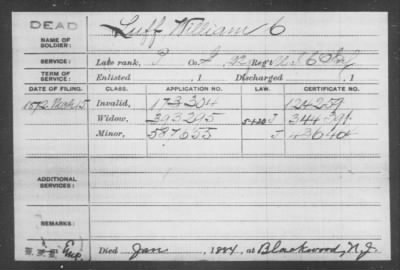 DEAD
NAME OF SOLDIER: Luff William C
SERVICE: Late rank, P Co. F, 22 Reg't U.S.C. Inf
TERM OF SERVICE: Enlisted , 1 Discharged , 1
DATE OF FILING. CLASS. APPLICATION NO. LAW. CERTIFICATE NO.
Invalid, 173304 124259
Widow, 393295 344391
Minor, 587655
ADDITIONAL SERVICES:
REMARKS:
Died Jan 1884 at Blackwood, N.J.